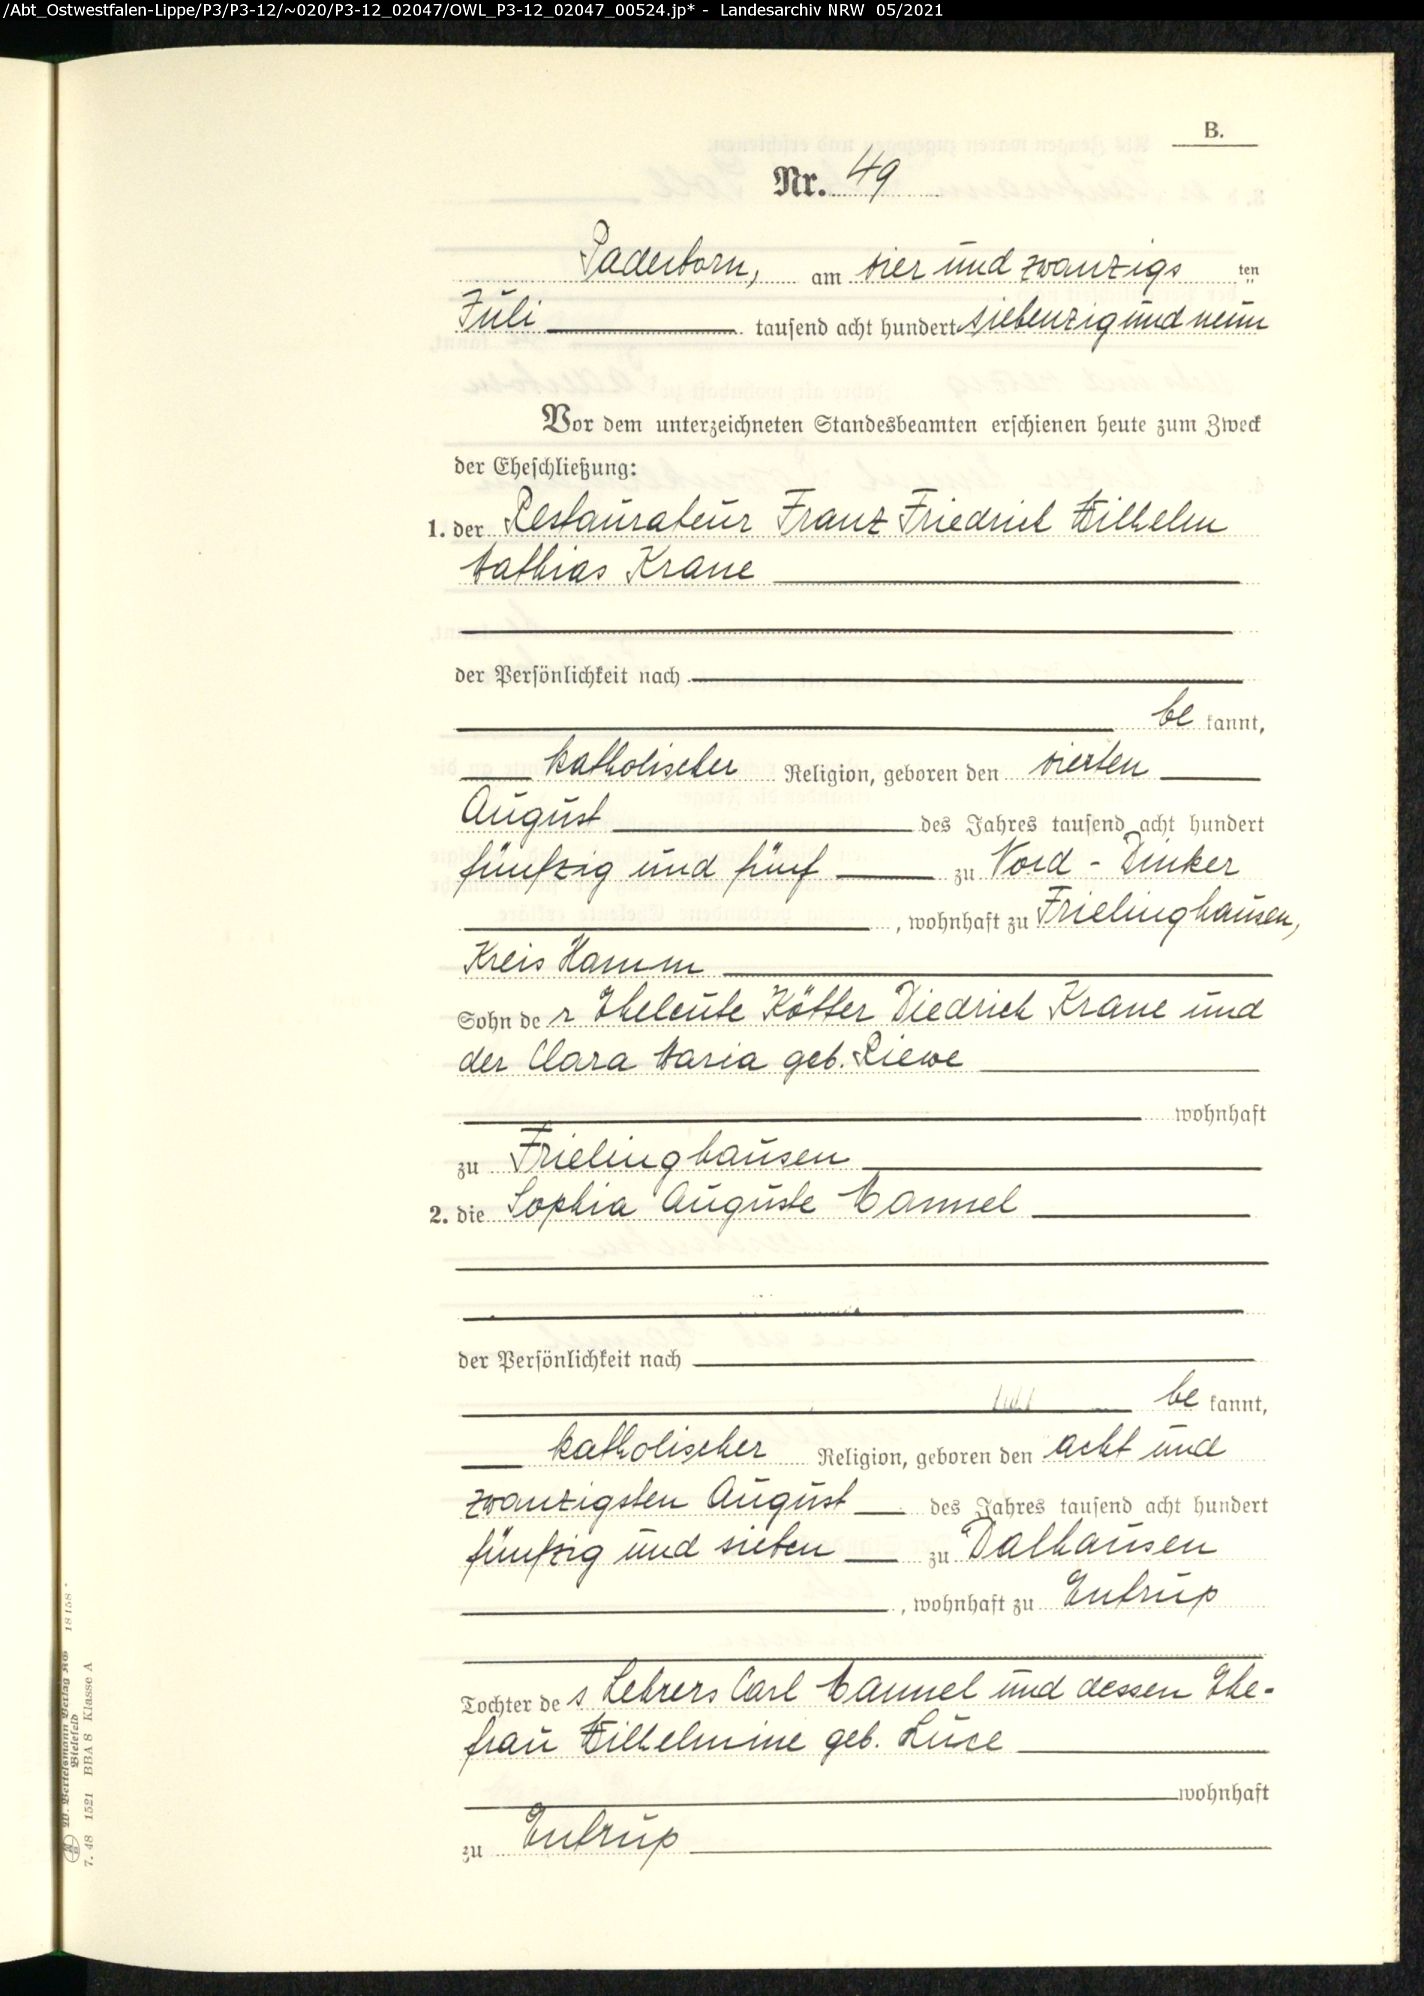 /Abt_Ostwestfalen-Lippe/P3/P3-12/~020/P3-12_02047/OWL_P3-12_02047_00524.jp* - Landesarchiv NRW 05/2021
B.
Nr. 49
Paderborn, am vier und zwanzigs ten
Juli tausend acht hundert siebenzig und neun
Vor dem unterzeichneten Standesbeamten erschienen heute zum Zweck
der Eheschließung:
1. der Restaurateur Franz Friedrich Wilhelm
Mathias Krane
der Persönlichkeit nach
be kannt,
katholischer Religion, geboren den vierten
August des Jahres tausend acht hundert
fünfzig und fünf zu Nord-Dinker
, wohnhaft zu Frielinghausen,
Kreis Hamm
Sohn de r Eheleute Kötter Diedrich Krane und
der Clara Maria geb. Riewe
wohnhaft
zu Frielinghausen
2. die Sophia Auguste Mannel
der Persönlichkeit nach
be kannt,
katholischer Religion, geboren den acht und
zwanzigsten August des Jahres tausend acht hundert
fünfzig und sieben zu Dalhausen
, wohnhaft zu Entrup
Tochter de s Lehrers Carl Mannel und dessen Ehe-
frau Wilhelmine geb. Luce
wohnhaft
zu Entrup
W. Bertelsmann Verlag KG
Bielefeld
7. 48 1521 BBA S Klasse A